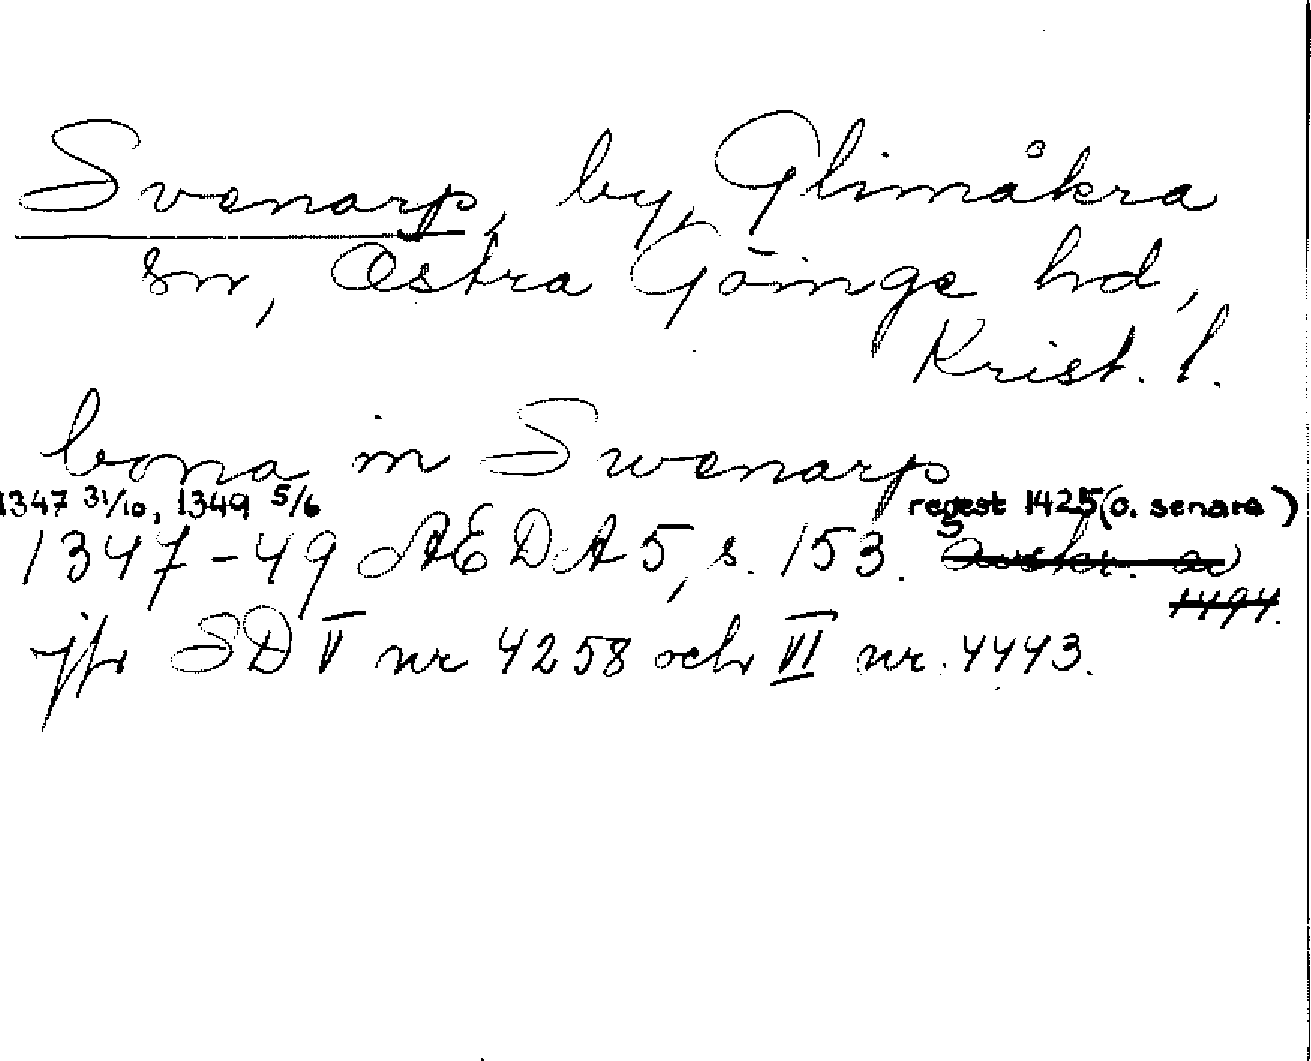 Svenarp, by, Glimåkra
sn, Östra Göinge hd,
Krist. l.
bona in Swenarp
1347 31/10, 1349 5/6 regest 1425 (o. senare)
1347-49 AEDA 5, s. 153. Avskr. av
1494.
jfr SD V nr 4258 och VI nr. 4443.